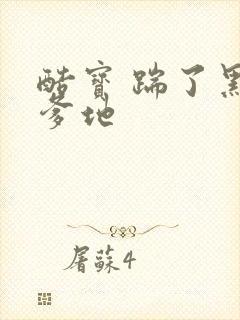 酷寶踹了黑
爹地
屠蘇4